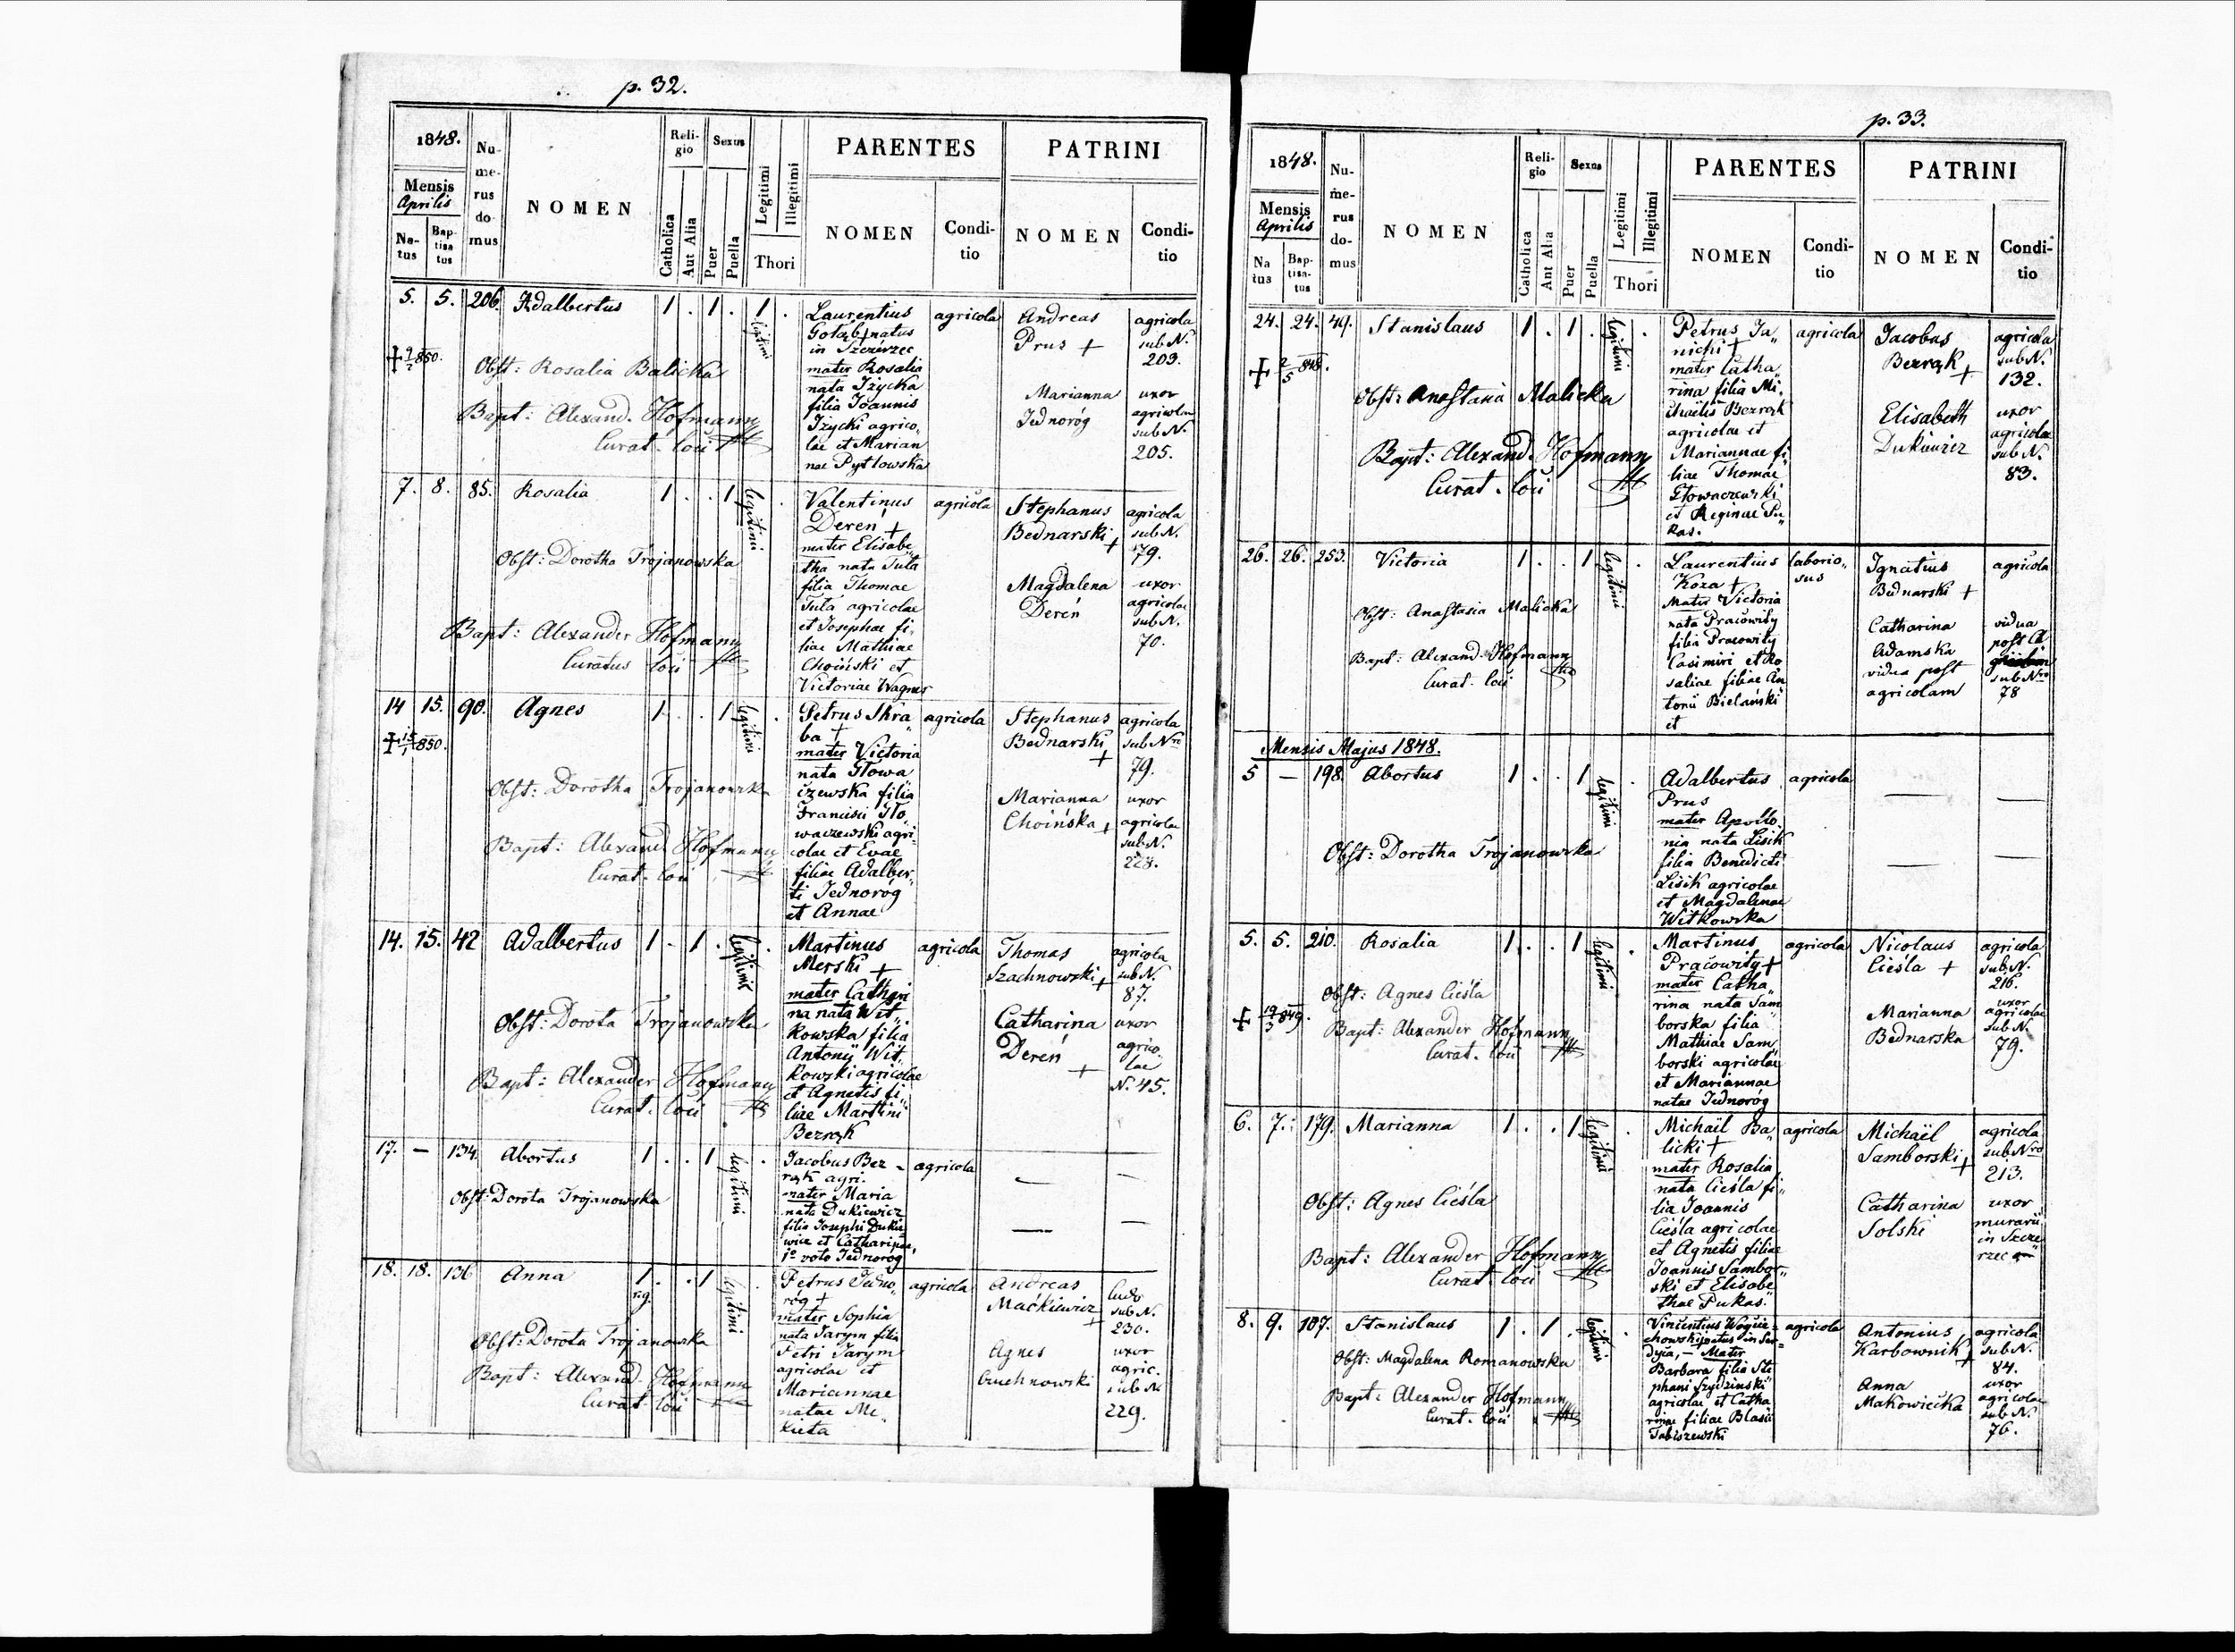 p. 32.
1848.
Mensis
Aprilis
Na-
tus
Bap-
tisa
tus
Nu-
me-
rus
do-
mus
NOMEN
Reli-
gio
Catholica
Aut Alia
Sexus
Puer
Puella
Legitimi
Illegitimi
Thori
PARENTES
NOMEN
Condi-
tio
PATRINI
NOMEN
Condi-
tio
5. 5. 206. Adalbertus 1 . 1 . 1 .
legitimi
Obst: Rosalia Balicka
Bapt: Alexand. Hofmann
Curat. loci
Laurentius
Gołąb natus
in Szczérzec
mater Rosalia
nata Izycka
filia Joannis
Izycki agrico,
lae et Marian
nae Pytlowska
agricola
Andreas
Prus +
agricola
sub N.
203.
Marianna
Jednoróg
uxor
agricolae
sub N.
205.
7. 8. 85. Rosalia 1 . . 1 legitimi .
Obst: Dorotha Trojanowska
Bapt: Alexander Hofmann
Curatus loci
Valentinus
Dereń +
mater Elisabe
tha nata Tuła
filia Thomae
Tuła agricolae
et Josephae fi,
liae Mathiae
Choiński et
Victoriae Wagner
agricola
Stephanus
Bednarski +
agricola
sub N.
79.
Magdalena
Dereń
uxor
agricolae
sub N.
70.
14 15. 90. Agnes 1 . . 1 legitimi .
Obst: Dorotha Trojanowska
Bapt: Alexand Hofmann
Curat. loci
Petrus Skra
ba +
mater Victoria
nata Głowa
czewska filia
Francisci Gło,
waczewski agri-
colae et Evae
filiae Adalber,
ti Jednoróg
et Annae
agricola
Stephanus
Bednarski
+
agricola
sub Nro
79.
Marianna
Choińska +
uxor
agricolae
sub N.
228.
14. 15. 42 Adalbertus 1 . 1 . legitimi .
Obst: Dorota Trojanowska
Bapt: Alexander Hofmann
Curat. loci
Martinus
Merski +
mater Cathari
na nata Wit,
kowska filia
Antonij Wit,
kowski agricolae
et Agnetis fi,
liae Martini
Bezrąk
agricola
Thomas
Szachnowski +
agricola
sub N.
87.
Catharina
Dereń
+
uxor
agrico,
lae
N. 45.
17. — 134. Abortus 1 . . 1 legitimi .
Obst: Dorota Trojanowska
Jacobus Bez -
rąk agri.
mater Maria
nata Dukiewicz
filia Josephi Duki
wicz et Catharinae,
1o voto Jednoróg
agricola
— —
— —
18. 18. 136 Anna 1 . . 1 legitimi .
Obst: Dorota Trojanowska
Bapt: Alexand. Hofmann
Curat loci
Petrus Jedno,
róg +
mater Sophia
nata Jarym filia
Petri Jarym
agricolae et
Mariannae
natae Me,
kieta
agricola
Andreas
Maćkiewicz
+
sub N.
230.
Agnes
uxor
agric.
sub N.
229.
p. 33.
1848.
Mensis
Aprilis
Na
tus
Bap-
tisa-
tus
Nu-
me-
rus
do-
mus
NOMEN
Reli-
gio
Catholica
Aut Alia
Sexus
Puer
Puella
Legitimi
Illegitimi
Thori
PARENTES
NOMEN
Condi-
tio
PATRINI
NOMEN
Condi-
tio
24. 24. 49. Stanislaus 1 . 1 . legitimi .
Obst: Anastasia Malicka
Bapt: Alexand. Hofmann
Curat. loci
Petrus Ja,
nicki +
mater Catha,
rina filia Mi,
chaëlis Bezrąk
agricolae et
Mariannae fi,
liae Thomae
Głowaczewski
et Reginae Pu,
kas.
agricola
Jacobus
Bezrąk
+
agricola
sub N.
132.
Elisabeth
Dukiewicz
uxor
agricolae
sub N.
83.
26. 26. 253. Victoria 1 . . 1 legitimi .
Obst: Anastasia Malicka
Bapt: Alexand. Hofmann
Curat. loci
Laurentius
Koza +
Mater Victoria
nata Pracowity
filia Pracowity
Casimiri et Ro
saliae filiae An
tonii Bielański
et
laborio,
sus
Ignatius
Bednarski +
agricola
Catharina
Adamska
vidua post
agricolam
vidua
post
sub Nro
78
Mensis Majus 1848.
5 — 198. Abortus 1 . . 1 legitimi .
Obst: Dorotha Trojanowska
Adalbertus
Prus
mater Apollo.
nia nata Lisik
filia Benedicti
Lisik agricolae
et Magdalenae
Witkowska
agricola
— —
— —
5. 5. 210. Rosalia 1 . . 1 legitimi .
Obst: Agnes Cieśla
Bapt: Alexander Hofmann
Curat. loci
Martinus
Pracowity +
mater Catha,
rina nata Sam
borska filia
Mathiae Sam,
borski agricolae
et Mariannae
natae Jednoróg
agricola
Nicolaus
Cieśla +
agricola
sub N.
216.
Marianna
Bednarska
uxor
agricolae
sub N.
79.
6. 7. 179. Marianna 1 . . 1 legitimi .
Obst: Agnes Cieśla
Bapt: Alexander Hofmann
Curat. loci
Michaël Ba,
licki +
mater Rosalia
nata Cieśla fi,
lia Joannis
Cieśla agricolae
et Agnetis filiae
Joannis Sambor,
ski et Elisabe,
thae Pukas.
agricola
Michaël
Samborski +
agricola
sub Nro
213.
Catharina
Solski
uxor
murarii
in Szcze
rzec
8. 9. 107. Stanislaus 1 . 1 . legitimi .
Obst: Magdalena Romanowska
Bapt: Alexander Hofmann
Curat. loci
Mater
Barbara filia Ste
phani Szydzinski
agricolae et Catha
rinae filiae Blasii
Tabiszewski
agricola
Antonius
Karbownik +
agricola
sub N.
84.
Anna
Makowiecka
uxor
agricolae
sub N.
76.